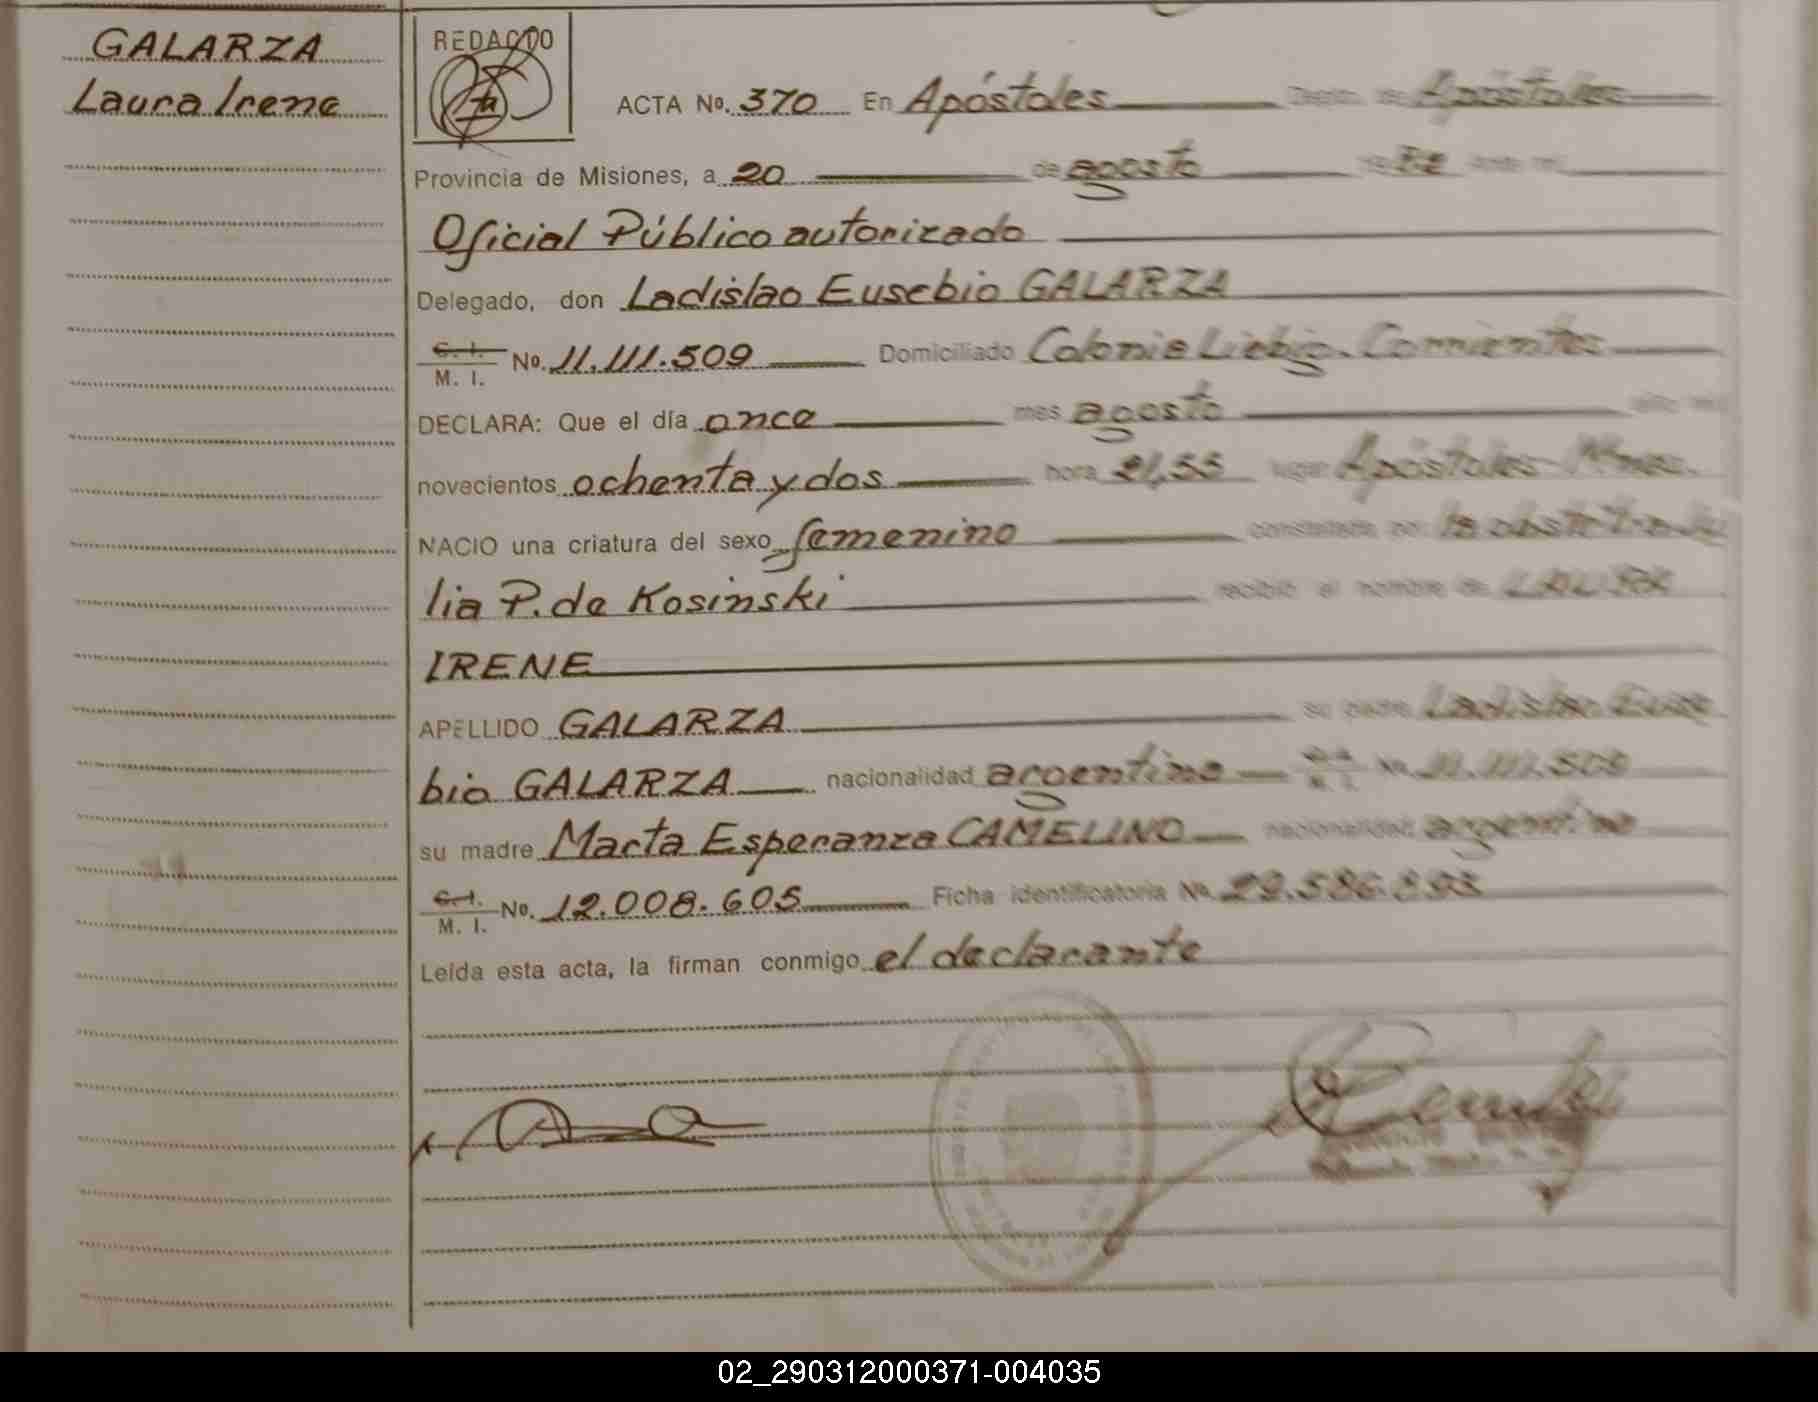 GALARZA
Laura Irene
REDACTO
ACTA No. 370 En Apóstoles Depto. de Apóstoles
Provincia de Misiones, a 20 de agosto de 82 ante mí
Oficial Público autorizado
Delegado, don Ladislao Eusebio GALARZA
C. I. M. I. No. 11.111.509 Domiciliado Colonia Liebig. Corrientes
DECLARA: Que el día once mes agosto año mil
novecientos ochenta y dos hora 21,55 lugar Apóstoles-Mnes.
NACIO una criatura del sexo femenino constatada por la obstetra Ju
lia P. de Kosinski recibió el nombre de LAURA
IRENE
APELLIDO GALARZA su padre Ladislao Euse
bio GALARZA nacionalidad argentino C. I. M. I. No. 11.111.509
su madre Marta Esperanza CAMELINO nacionalidad argentina
C. I. M. I. No. 12.008.605 Ficha identificatoria No. 29.586.893
Leída esta acta, la firman conmigo el declarante
02_290312000371-004035